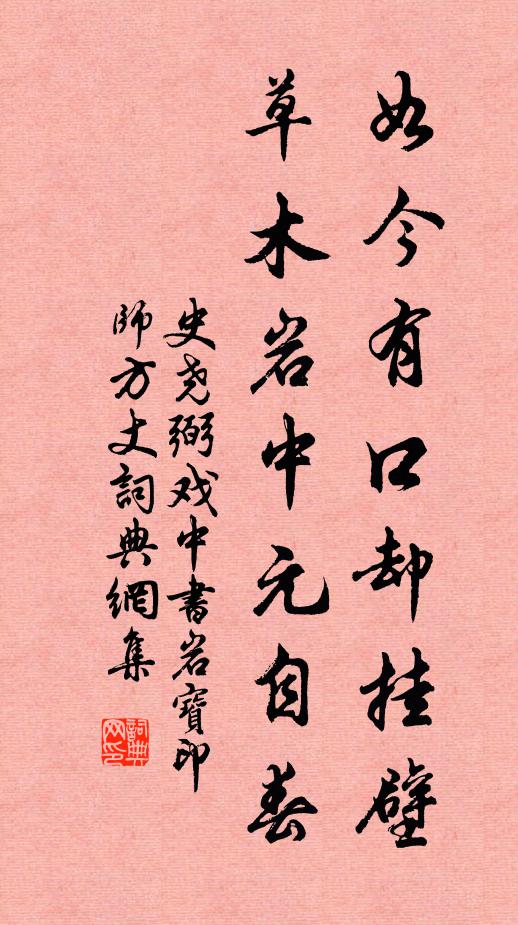 如今有口却挂壁
草木岩中元自春
史尧弼戏中書岩寶印
師方丈詞典網集
詞典
网印